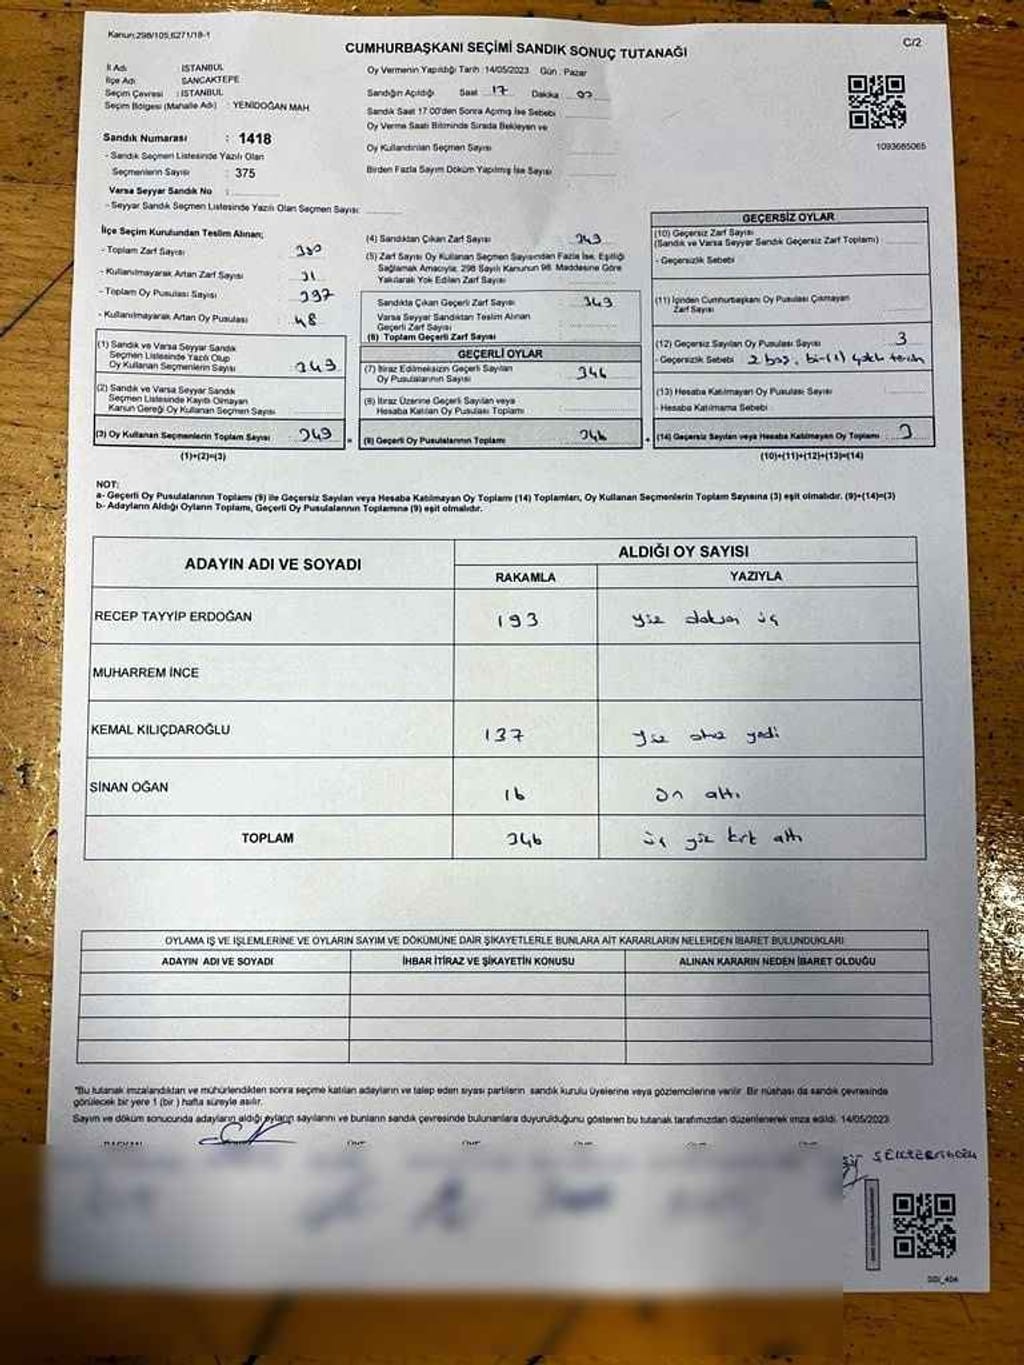 Kanun:298/105,6271/18-1
CUMHURBAŞKANI SEÇİMİ SANDIK SONUÇ TUTANAĞI
C/2
İl Adı : İSTANBUL
İlçe Adı : SANCAKTEPE
Seçim Çevresi : İSTANBUL
Seçim Bölgesi (Mahalle Adı) : YENİDOĞAN MAH.
Sandık Numarası : 1418
- Sandık Seçmen Listesinde Yazılı Olan
Seçmenlerin Sayısı : 375
Varsa Seyyar Sandık No :
- Seyyar Sandık Seçmen Listesinde Yazılı Olan Seçmen Sayısı:
Oy Vermenin Yapıldığı Tarih :14/05/2023 Gün : Pazar
Sandığın Açıldığı Saat 17 Dakika
Sandık Saat 17:00'den Sonra Açılmış İse Sebebi
Oy Verme Saati Bitiminde Sırada Bekleyen ve
Oy Kullandırılan Seçmen Sayısı
Birden Fazla Sayım Döküm Yapılmış İse Sayısı
1093685065
İlçe Seçim Kurulundan Teslim Alınan;
- Toplam Zarf Sayısı 380
- Kullanılmayarak Artan Zarf Sayısı 31
- Toplam Oy Pusulası Sayısı 397
- Kullanılmayarak Artan Oy Pusulası : 48
(1) Sandık ve Varsa Seyyar Sandık
Seçmen Listesinde Yazılı Olup
Oy Kullanan Seçmenlerin Sayısı 349
(2) Sandık ve Varsa Seyyar Sandık
Seçmen Listesinde Kayıtlı Olmayan
Kanun Gereği Oy Kullanan Seçmen Sayısı
(3) Oy Kullanan Seçmenlerin Toplam Sayısı 349
(1)+(2)=(3)
(4) Sandıktan Çıkan Zarf Sayısı 349
(5) Zarf Sayısı Oy Kullanan Seçmen Sayısından Fazla İse, Eşitliği
Sağlamak Amacıyla; 298 Sayılı Kanunun 98. Maddesine Göre
Yakılarak Yok Edilen Zarf Sayısı
Sandıkta Çıkan Geçerli Zarf Sayısı 349
Varsa Seyyar Sandıktan Teslim Alınan
Geçerli Zarf Sayısı
(6) Toplam Geçerli Zarf Sayısı
GEÇERLİ OYLAR
(7) İtiraz Edilmeksizin Geçerli Sayılan
Oy Pusulalarının Sayısı 346
(8) İtiraz Üzerine Geçerli Sayılan veya
Hesaba Katılan Oy Pusulası Toplamı
(9) Geçerli Oy Pusulalarının Toplamı 346
GEÇERSİZ OYLAR
(10) Geçersiz Zarf Sayısı
(Sandık ve Varsa Seyyar Sandık Geçersiz Zarf Toplamı)
- Geçersizlik Sebebi
(11) İçinden Cumhurbaşkanı Oy Pusulası Çıkmayan
Zarf Sayısı
(12) Geçersiz Sayılan Oy Pusulası Sayısı 3
- Geçersizlik Sebebi 2 boş, bir(1)
(13) Hesaba Katılmayan Oy Pusulası Sayısı
- Hesaba Katılmama Sebebi
(14) Geçersiz Sayılan veya Hesaba Katılmayan Oy Toplamı 3
(10)+(11)+(12)+(13)=(14)
NOT:
a- Geçerli Oy Pusulalarının Toplamı (9) ile Geçersiz Sayılan veya Hesaba Katılmayan Oy Toplamı (14) Toplamları, Oy Kullanan Seçmenlerin Toplam Sayısına (3) eşit olmalıdır. (9)+(14)=(3)
b- Adayların Aldığı Oyların Toplamı, Geçerli Oy Pusulalarının Toplamına (9) eşit olmalıdır.
ADAYIN ADI VE SOYADI
ALDIĞI OY SAYISI
RAKAMLA YAZIYLA
RECEP TAYYİP ERDOĞAN 193 yüz doksan üç
MUHARREM İNCE
KEMAL KILIÇDAROĞLU 137 yüz otuz yedi
SİNAN OĞAN 16 on altı
TOPLAM 346 üç yüz kırk altı
OYLAMA İŞ VE İŞLEMLERİNE VE OYLARIN SAYIM VE DÖKÜMÜNE DAİR ŞİKAYETLERLE BUNLARA AİT KARARLARIN NELERDEN İBARET BULUNDUKLARI
ADAYIN ADI VE SOYADI İHBAR İTİRAZ VE ŞİKAYETİN KONUSU ALINAN KARARIN NEDEN İBARET OLDUĞU
*Bu tutanak imzalandıktan ve mühürlendikten sonra seçime katılan adayların ve talep eden siyasi partilerin sandık kurulu üyelerine veya gözlemcilerine verilir. Bir nüshası da sandık çevresinde
görülecek bir yere 1 (bir) hafta süreyle asılır.
Sayım ve döküm sonucunda adayların aldığı oyların sayılarını ve bunların sandık çevresinde bulunanlara duyurulduğunu gösteren bu tutanak tarafımızdan düzenlenerek imza edildi. 14/05/2023